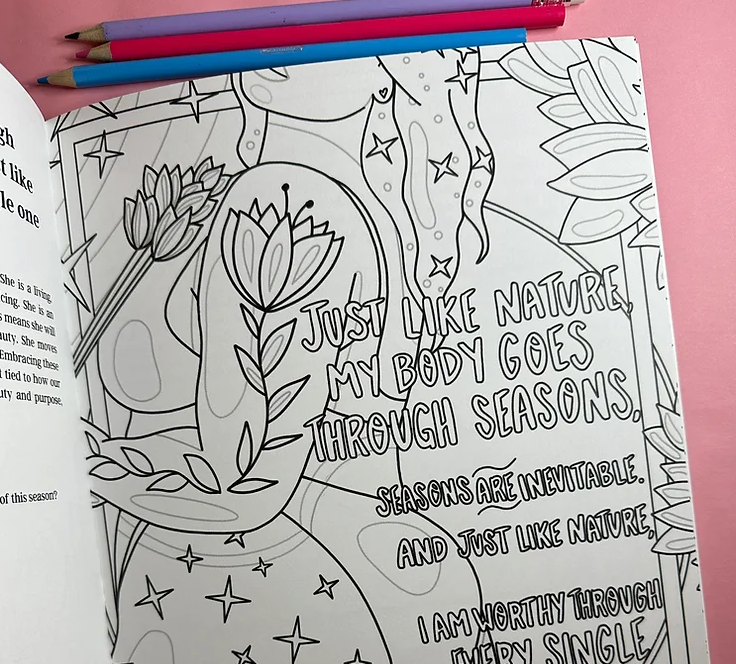 t like
le one
She is a living,
cing. She is an
s means she will
uty. She moves
Embracing these
t tied to how our
uty and purpose.
of this season?
JUST LIKE NATURE,
MY BODY GOES
THROUGH SEASONS.
SEASONS ARE INEVITABLE.
AND JUST LIKE NATURE,
I AM WORTHY THROUGH
EVERY SINGLE